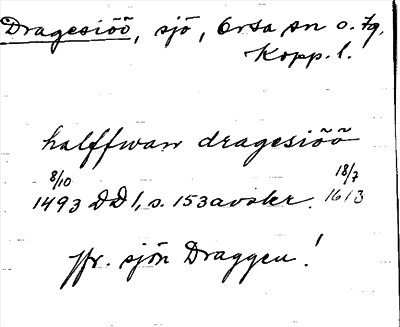 Dragesiöö, sjö, Orsa sn o. tg.
Kopp. l.
halffwan dragesiöö
8/10 18/7
1493 DD 1, s. 153 avskr. 1613
Jfr. sjön Draggen!